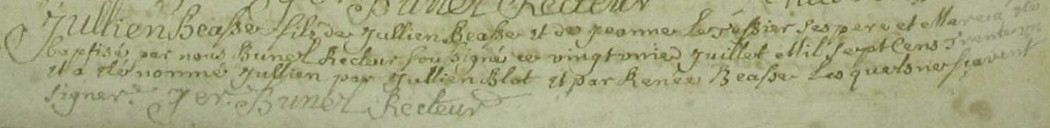 Bunel Recteur
Jullien Beasse fils de Jullien Beasse et de jeanne ses pere et Mere a été
baptisé par nous Bunel Recteur sousigné ce vingt juillet mil sept cens trente
et a été nommé Jullien par Jullien Blot et par Renée Beasse lesquels ne sçavent
signer. Bunel Recteur